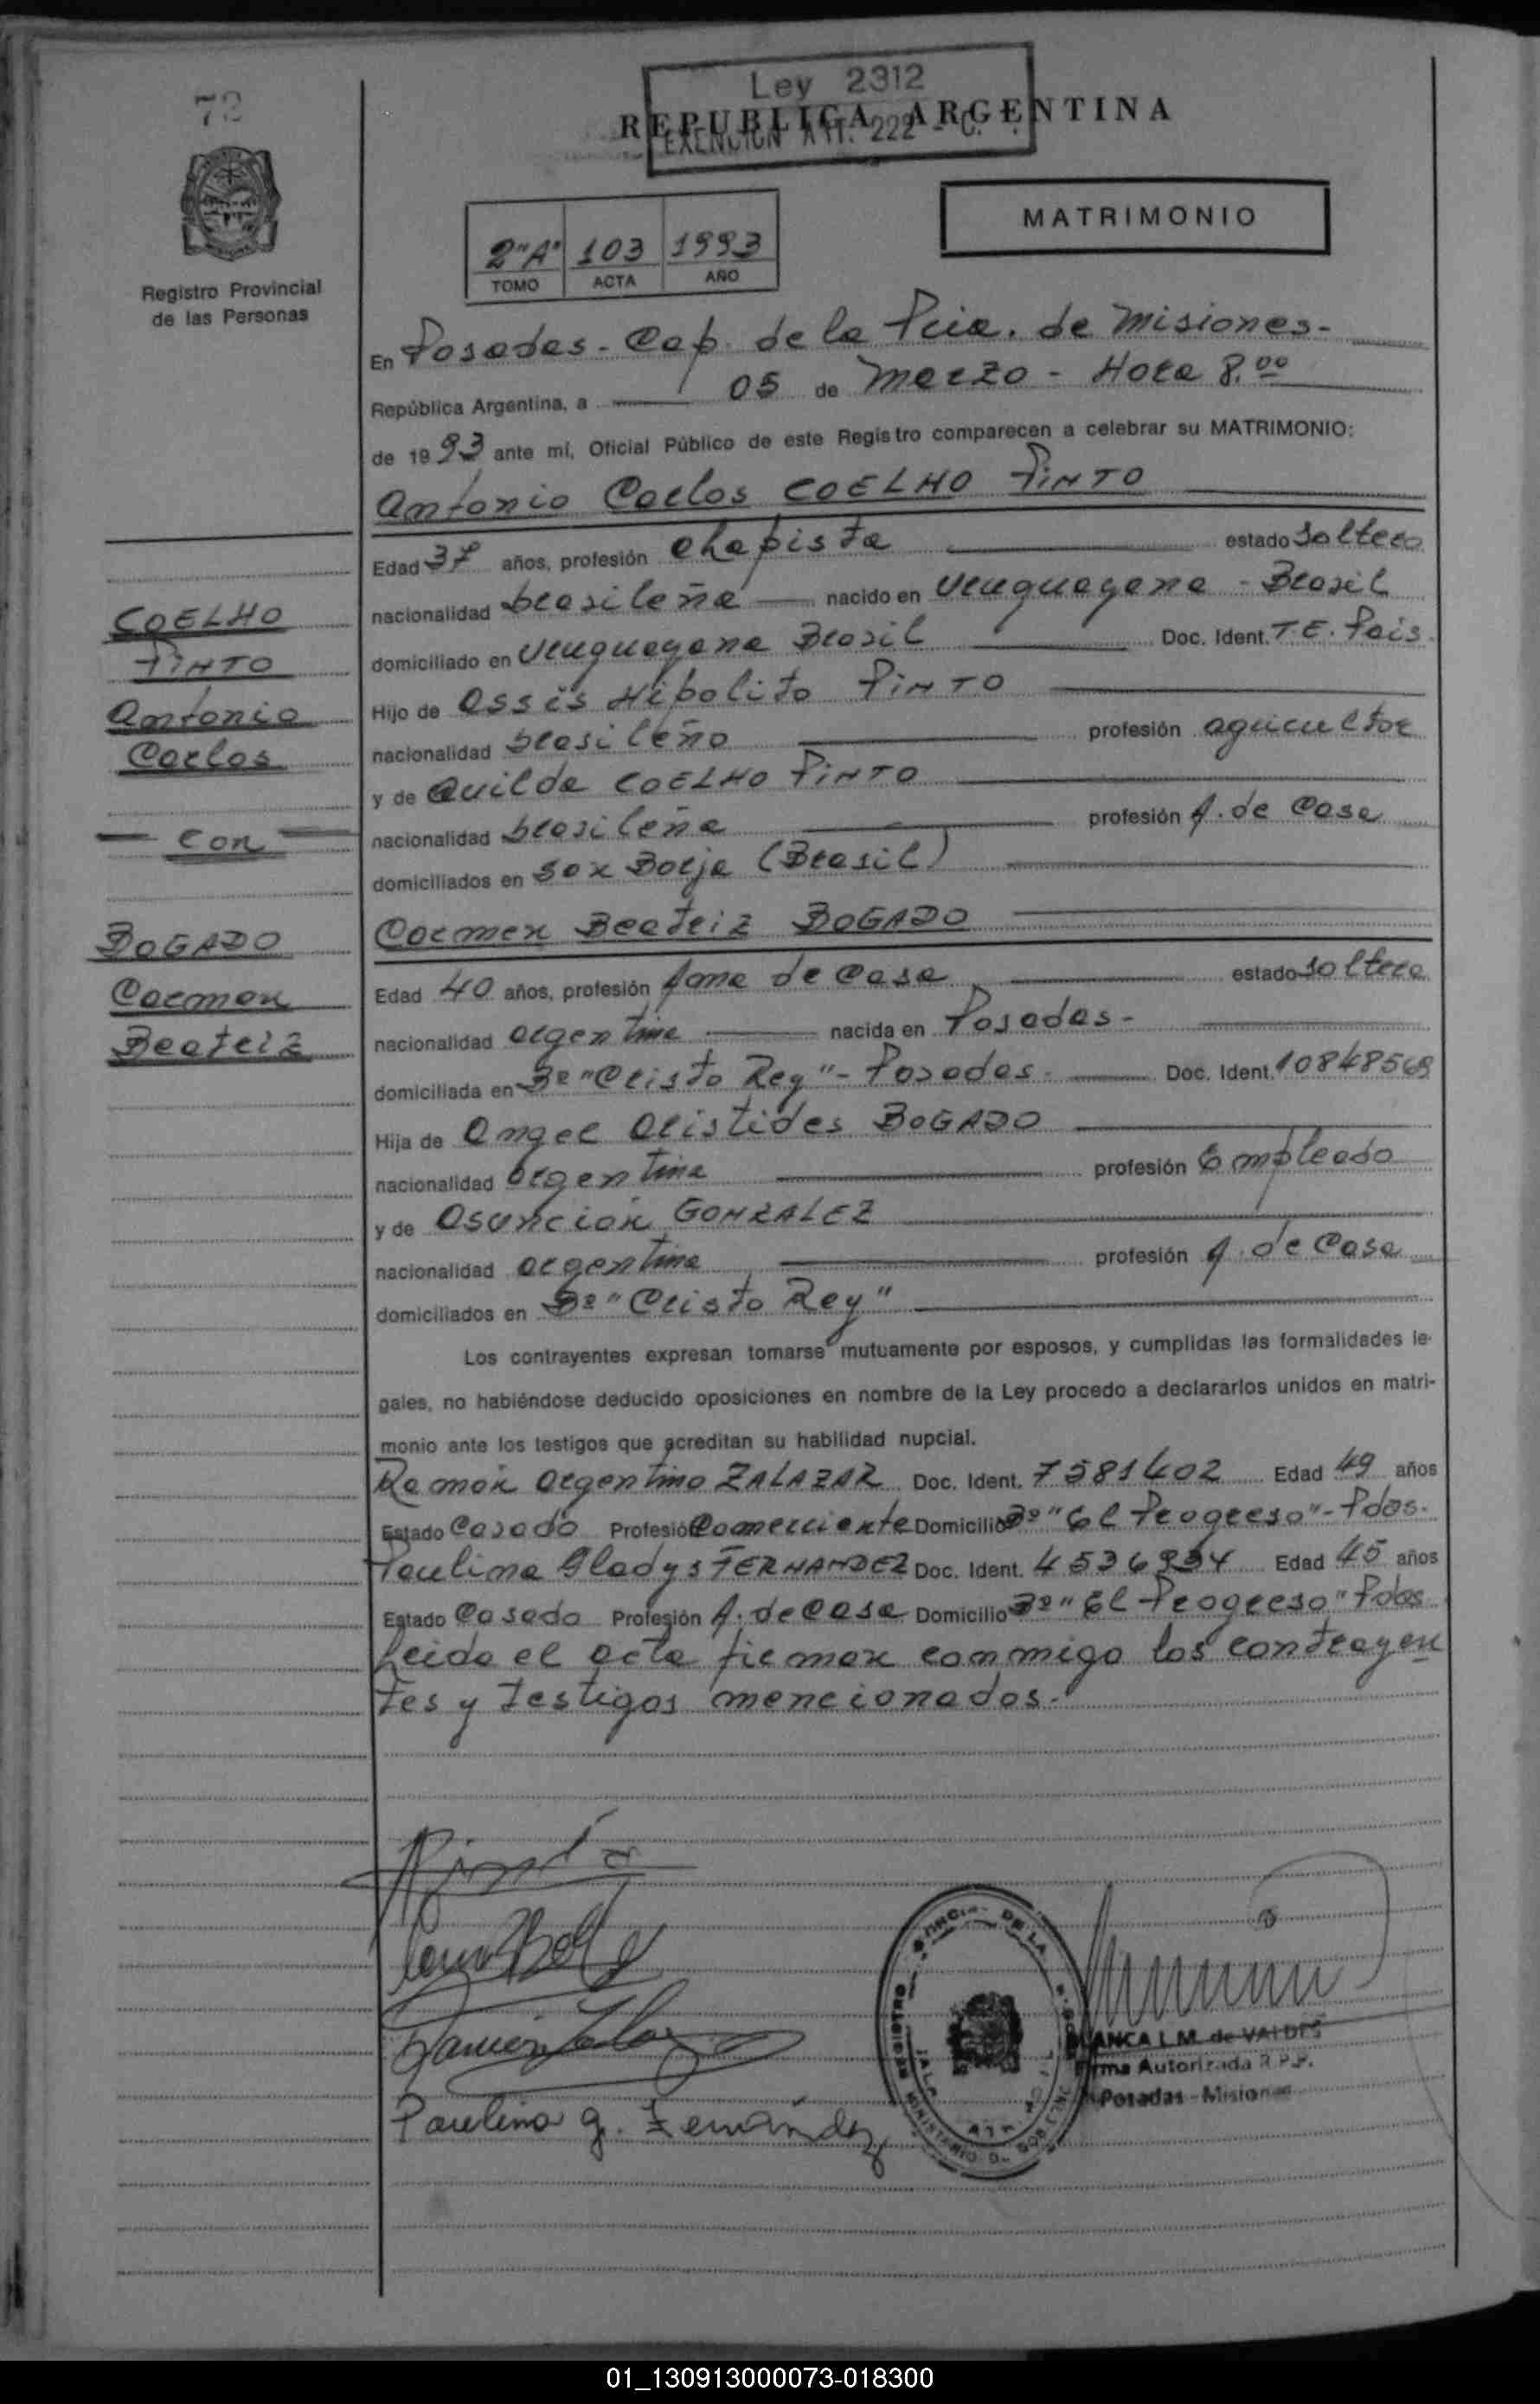 72
Ley 2312
REPUBLICA ARGENTINA
EXENCION Art. 222 - C.
MATRIMONIO
2"A" 103 1993
TOMO ACTA AÑO
Registro Provincial
de las Personas
En Posadas - Cap. de la Pcia. de Misiones-
República Argentina, a 05 de Marzo - Hora 8.00
de 1993 ante mí, Oficial Público de este Registro comparecen a celebrar su MATRIMONIO:
Antonio Carlos COELHO PINTO
Edad 37 años, profesión chapista estado soltero
nacionalidad brasileña nacido en Uruguayana - Brasil
domiciliado en Uruguayana Brasil Doc. Ident. T.E. Pais.
Hijo de Assis Hipolito PINTO
nacionalidad brasileño profesión agricultor
y de Quilda COELHO PINTO
nacionalidad brasileña profesión A. de Casa
domiciliados en Borja (Brasil)
Carmen Beatriz BOGADO
Edad 40 años, profesión Ama de Casa estado soltera
nacionalidad argentina nacida en Posadas-
domiciliada en Bº "Cristo Rey" - Posadas. Doc. Ident. 10848569
Hija de Angel Aristides BOGADO
nacionalidad argentina profesión Empleado
y de Asunción GONZALEZ
nacionalidad argentina profesión A. de Casa
domiciliados en Bº "Cristo Rey"
Los contrayentes expresan tomarse mutuamente por esposos, y cumplidas las formalidades le-
gales, no habiéndose deducido oposiciones en nombre de la Ley procedo a declararlos unidos en matri-
monio ante los testigos que acreditan su habilidad nupcial.
Ramón Argentino ZALAZAR Doc. Ident. 7581402 Edad 49 años
Estado Casado Profesión Comerciante Domicilio Bº "El Progreso" - Pdas.
Paulina Gladys FERNANDEZ Doc. Ident. 4536934 Edad 45 años
Estado Casada Profesión A. de Casa Domicilio Bº "El Progreso" Pdas
Leida el acta firman conmigo los contrayen
tes y testigos mencionados.-
COELHO
PINTO
Antonio
Carlos
con
BOGADO
Carmen
Beatriz
Paulina G. Fernández
REGISTRO
MINISTERIO
BLANCA L.M. de VALDES
Firma Autorizada R.P.P.
Posadas - Misiones
01_130913000073-018300